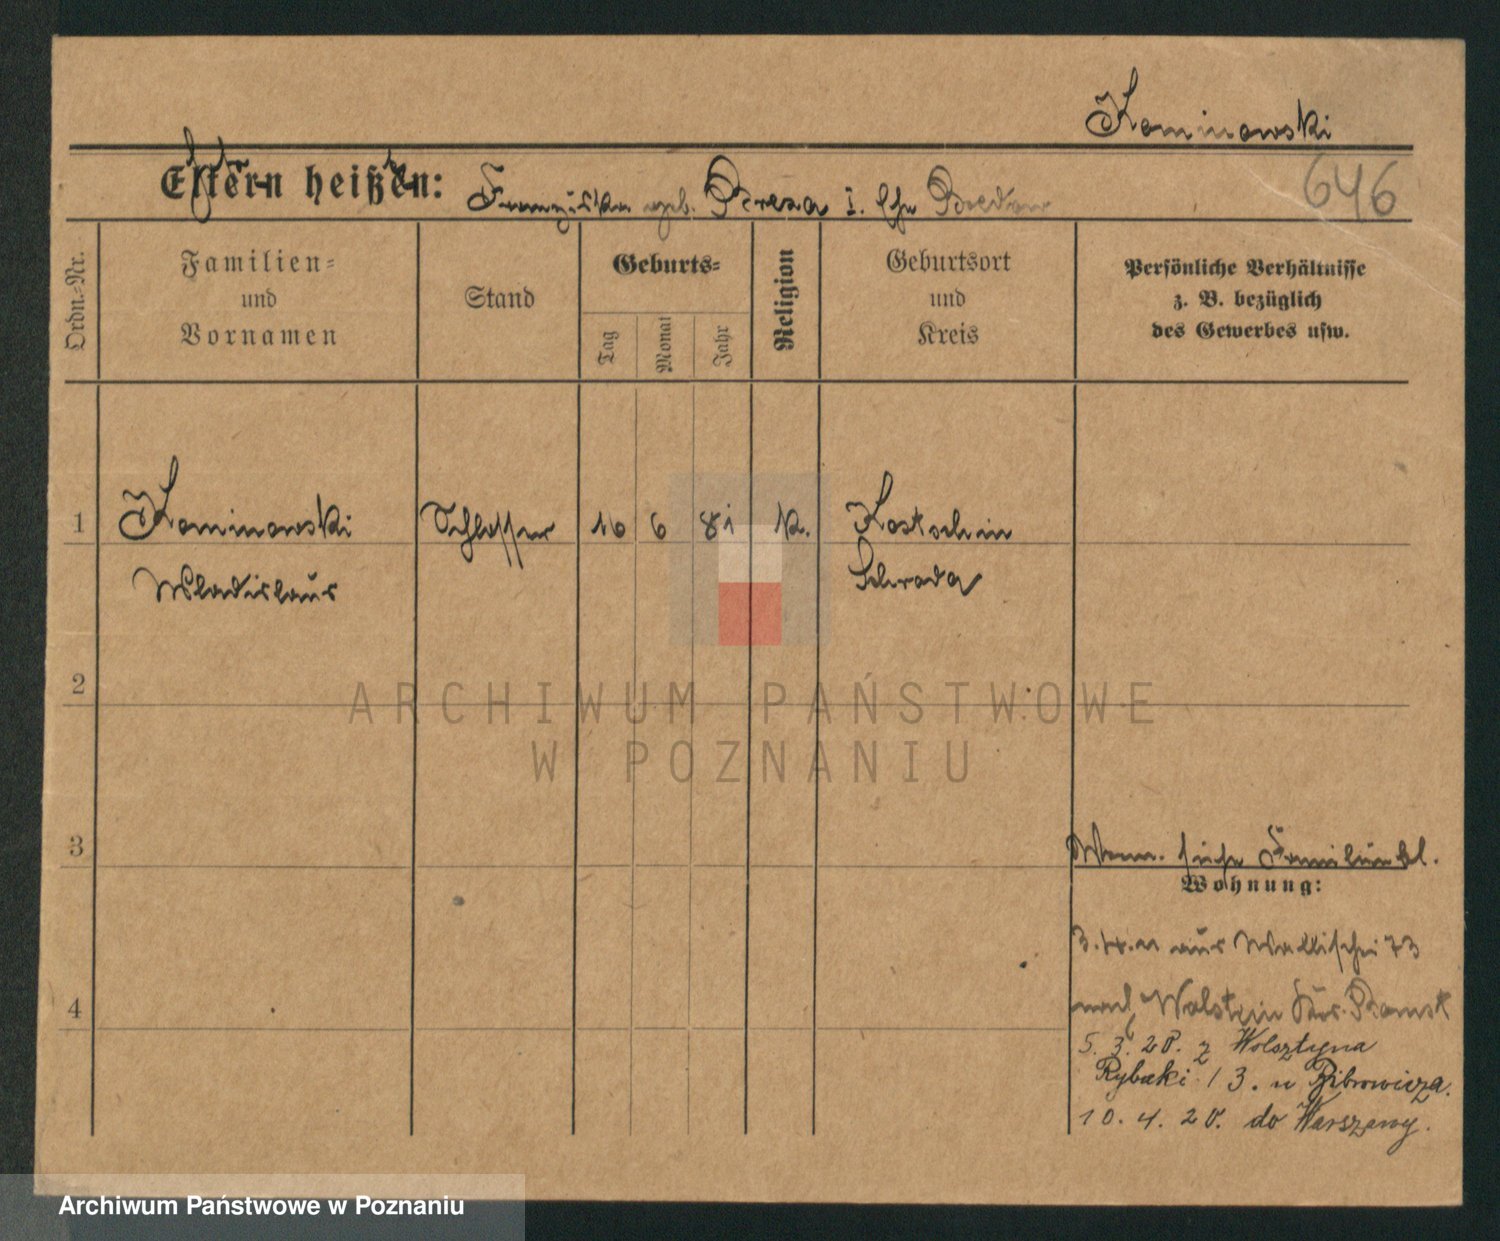 Kominowski
Eltern heißen: Franziska geb. Breza I. Ehe
646
Ordn.-Nr.
Familien-
und
Vornamen
Stand
Geburts-
Tag
Monat
Jahr
Religion
Geburtsort
und
Kreis
Persönliche Verhältnisse
z. B. bezüglich
des Gewerbes usw.
1 Kominowski Schlosser 16 6 81 K. Kostschin
Wladislaus Schroda
2
ARCHIWUM PAŃSTWOWE
W POZNANIU
3
siehe Familienbl.
Wohnung:
aus Wallischei 73
4
nach Wolstein Kr. Bomst
5. 3. 20. z Wolsztyna
Rybaki 13. u Bibrowicza.
10. 4. 20. do Warszawy.
Archiwum Państwowe w Poznaniu